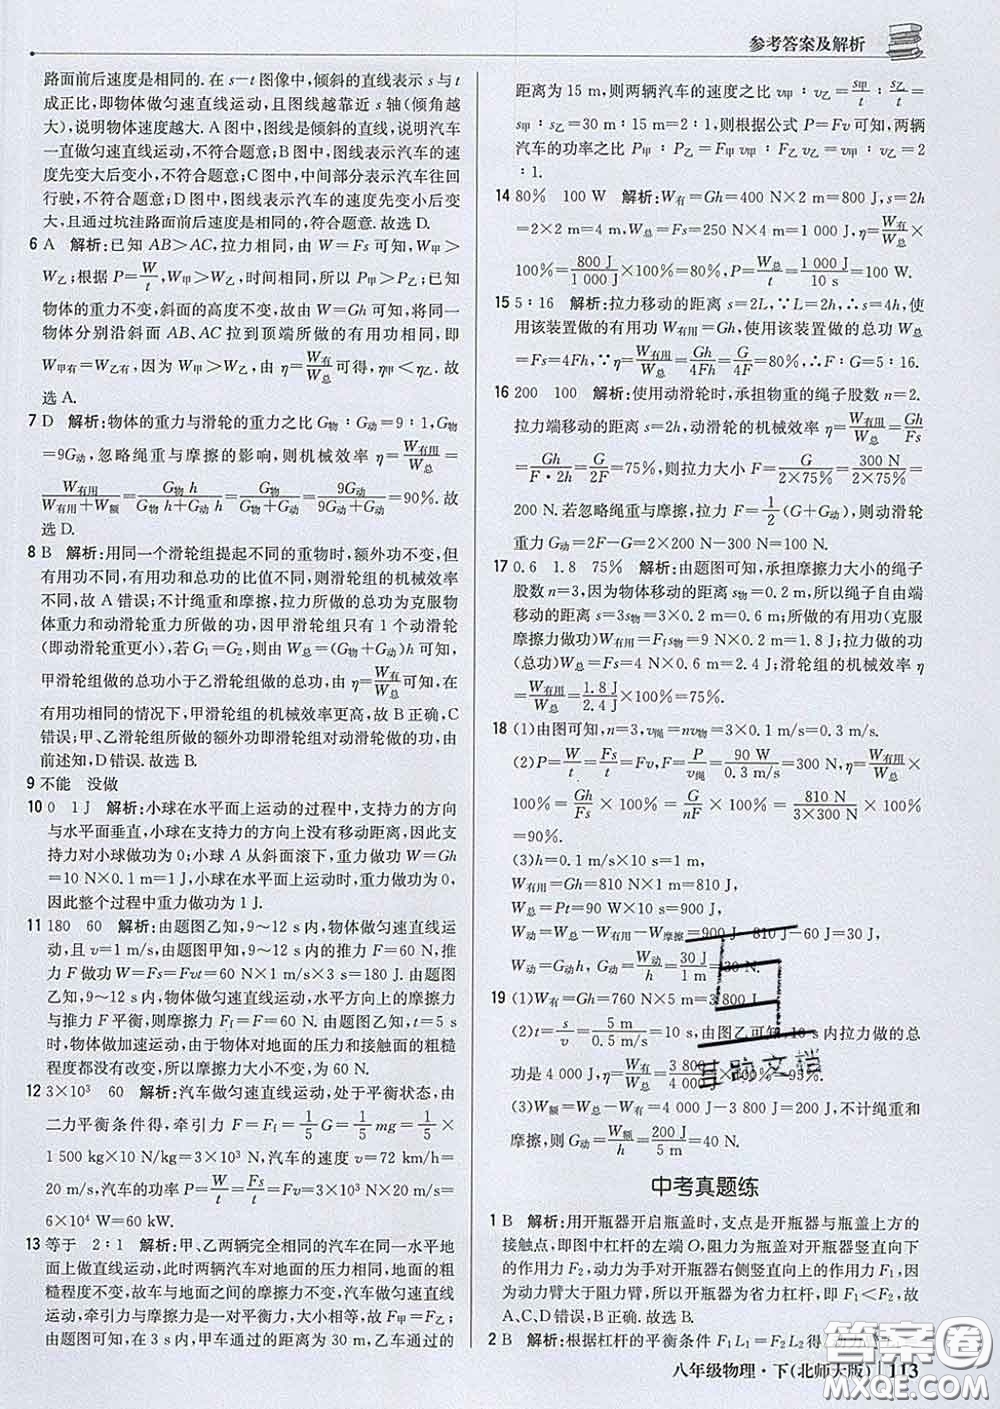 参考答案及解析
路面前后速度是相同的. 在 s—t 图像中,倾斜的直线表示 s 与 t
成正比,即物体做匀速直线运动,且图线越靠近 s 轴(倾角越
大),说明物体速度越大. A 图中,图线是倾斜的直线,说明汽车
一直做匀速直线运动,不符合题意;B 图中,图线表示汽车的速
度先变大后变小,不符合题意;C 图中,中间部分表示汽车往回
行驶,不符合题意;D 图中,图线表示汽车的速度先变小后变
大,且通过坑洼路面前后速度是相同的,符合题意. 故选 D.
6 A 解析:已知 AB>AC,拉力相同,由 W=Fs 可知,W甲>
W乙;根据 P=W/t,W甲>W乙,时间相同,所以 P甲>P乙;已知
物体的重力不变,斜面的高度不变,故由 W=Gh 可知,将同一
物体分别沿斜面 AB、AC 拉到顶端所做的有用功相同,即
W甲有=W乙有,因为 W甲>W乙,由 η=W有/W总 可得,η甲<η乙. 故
选 A.
7 D 解析:物体的重力与滑轮的重力之比 G物∶G动=9∶1,G物
=9G动,忽略绳重与摩擦的影响,则机械效率 η=W有用/W总=
W有用/(W有用+W额)=G物h/(G物h+G动h)=G物/(G物+G动)=9G动/(9G动+G动)=90%. 故
选 D.
8 B 解析:用同一个滑轮组提起不同的重物时,额外功不变,但
有用功不同,有用功和总功的比值不同,则滑轮组的机械效率
不同,故 A 错误;不计绳重和摩擦,拉力所做的总功为克服物
体重力和动滑轮重力所做的功,因甲滑轮组只有 1 个动滑轮
(即动滑轮重更小),若 G1=G2,则由 W总=(G物+G动)h 可知,
甲滑轮组做的总功小于乙滑轮组做的总功,由 η=W有/W总 可知,在
有用功相同的情况下,甲滑轮组的机械效率更高,故 B 正确,C
错误;甲、乙滑轮组所做的额外功即分别对动滑轮做的功,由
前述知,D 错误. 故选 B.
9 不能 没做
10 0 1 J 解析:小球在水平面上运动的过程中,支持力的方向
与水平面垂直,小球在支持力的方向上没有移动距离,因此支
持力对小球做功为 0;小球 A 从斜面滚下,重力做功 W=Gh
=10 N×0.1 m=1 J,小球在水平面上运动,重力做功为 0,
因此整个过程中重力做功为 1 J.
11 180 60 解析:由题图乙知,9~12 s 内,物体做匀速直线运
动,且 v=1 m/s,由题图甲知,9~12 s 内的推力 F=60 N,推
力 F 做功 W=Fs=Fvt=60 N×1 m/s×3 s=180 J. 由题
图乙知,9~12 s 内,物体做匀速直线运动,水平方向的摩擦力
与推力 F 平衡,则摩擦力 Ff=F=60 N. 由题图乙知,t=5 s
时,物体做加速运动,由于物体对地面的压力和接触面的粗糙
程度都没有改变,所以摩擦力大小不变,为 60 N.
12 3×10³ 60 解析:汽车做匀速直线运动,处于平衡状态,由
二力平衡条件得,牵引力 F=Ff=1/5 G=1/5 mg=1/5×
1 500 kg×10 N/kg=3×10³ N,汽车的速度 v=72 km/h=
20 m/s,汽车的功率 P=W/t=Fs/t=Fv=3×10³ N×20 m/s=
6×10⁴ W=60 kW.
13 等于 2∶1 解析:甲、乙两辆完全相同的汽车在同一水平地
面上做直线运动,此时两辆汽车对地面的压力相同,地面的粗
糙程度不变,故车与地面之间的摩擦力不变,汽车做匀速直线
运动,牵引力与摩擦力是一对平衡力,大小相等,故 F甲=F乙;
由题图可知,在 3 s 内,甲车通过的距离为 30 m,乙车通过的
距离为 15 m,则两辆汽车的速度之比 v甲∶v乙=s甲/t∶s乙/t
=s甲∶s乙=30 m∶15 m=2∶1,则根据公式 P=Fv 可知,两辆
汽车的功率之比 P甲∶P乙=F甲v甲∶F乙v乙=v甲∶v乙=2
∶1.
14 80% 100 W 解析:W有=Gh=400 N×2 m=800 J,s=2h
=2×2 m=4 m,W总=Fs=250 N×4 m=1 000 J,η=W有/W总×
100%=800 J/1 000 J×100%=80%,P=W总/t=1 000 J/10 s=100 W.
15 5∶16 解析:拉力移动的距离 s=2L,∵L=2h,∴s=4h,使
用该装置做的有用功 W有用=Gh,使用该装置做的总功 W总
=Fs=4Fh,∵η=W有用/W总=Gh/4Fh=G/4F=80%,∴F∶G=5∶16.
16 200 100 解析:使用动滑轮时,承担物重的绳子股数 n=2.
拉力端移动的距离 s=2h,动滑轮的机械效率 η=W有用/W总=Gh/Fs
=Gh/F·2h=G/2F=75%,则拉力大小 F=G/2×75%=300 N/2×75%=
200 N. 若忽略绳重与摩擦,拉力 F=1/2(G+G动),则动滑轮
重力 G动=2F-G=2×200 N-300 N=100 N.
17 0.6 1.8 75% 解析:由题图可知,承担摩擦力大小的绳子
股数 n=3,因为物体移动的距离 s物=0.2 m,所以绳子自由端
移动的距离 s=3s物=3×0.2 m=0.6 m;所做的有用功(克服
摩擦力做功)W有用=Ffs物=9 N×0.2 m=1.8 J;拉力做的功
(总功)W总=Fs=4 N×0.6 m=2.4 J;滑轮组的机械效率 η=
W有用/W总=1.8 J/2.4 J×100%=75%.
18 (1)由图可知,n=3,v绳=nv物=3×0.1 m/s=0.3 m/s.
(2)P=W/t=Fs/t=Fv绳,F=P/v绳=90 W/0.3 m/s=300 N,η=W有用/W总×
100%=Gh/Fs×100%=G/nF×100%=810 N/3×300 N×100%
=90%.
(3)h=0.1 m/s×10 s=1 m,
W有用=Gh=810 N×1 m=810 J,
W总=Pt=90 W×10 s=900 J,
W动=W总-W有用-W摩擦=900 J-810 J-60 J=30 J,
W动=G动h, G动=W动/h=30 J/1 m=30 N.
19 (1)W有=Gh=760 N×5 m=3 800 J.
(2)t=s/v=5 m/0.5 m/s=10 s,由图乙可知,10 s 内拉力做的总
功是 4 000 J,η=W有/W总=3 800 J/4 000 J×100%=95%.
(3)W额=W总-W有=4 000 J-3 800 J=200 J,不计绳重和
摩擦,则 G动=W额/h=200 J/5 m=40 N.
中考真题练
1 B 解析:用开瓶器开启瓶盖时,支点是开瓶器与瓶盖上方的
接触点,即图中杠杆的左端 O,阻力为瓶盖对开瓶器竖直向下
的作用力 F2,动力为手对开瓶器右侧竖直向上的作用力 F1,因
为动力臂大于阻力臂,所以开瓶器为省力杠杆,即 F1<F2,故
A、C、D 错误,B 正确. 故选 B.
2 B 解析:根据杠杆的平衡条件 F1L1=F2L2 得
八年级物理·下(北师大版) 113
答案圈
MXQE.COM